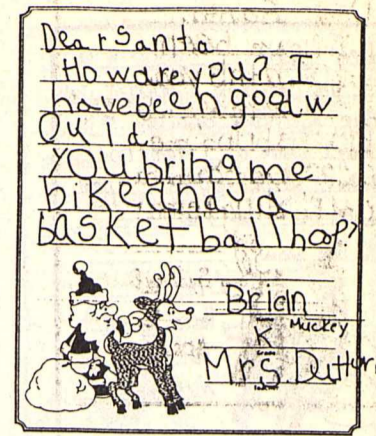 Dear Santa
How are you? I
have been good w
ould
you bring me
bike and a
basketball hoop?
Brian
Name Muckey
K
Grade
Mrs. Dutter
Teacher